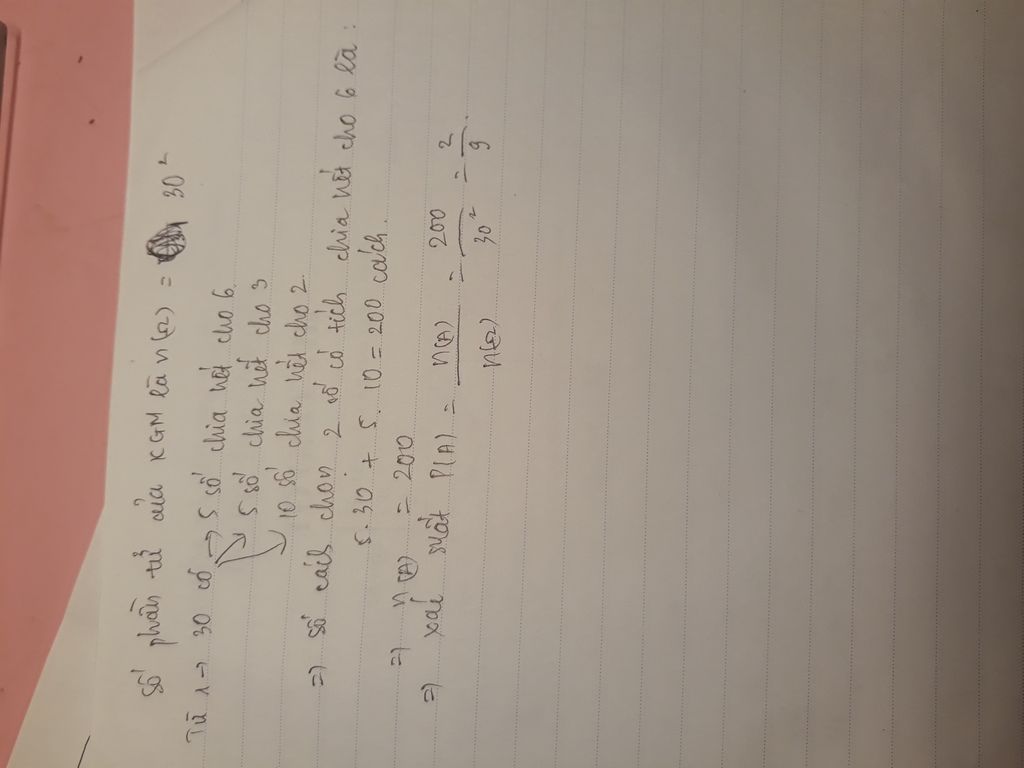 Số phần tử của KGM là n(Ω) = 30²
Từ 1 → 30 có → 5 số chia hết cho 6.
→ 5 số chia hết cho 3
→ 10 số chia hết cho 2.
=> số cách chọn 2 số có tích chia hết cho 6 là :
5.30 + 5.10 = 200 cách.
=> n(A) = 200
=> xác suất P(A) = n(A) / n(Ω) = 200 / 30² = 2 / 9.